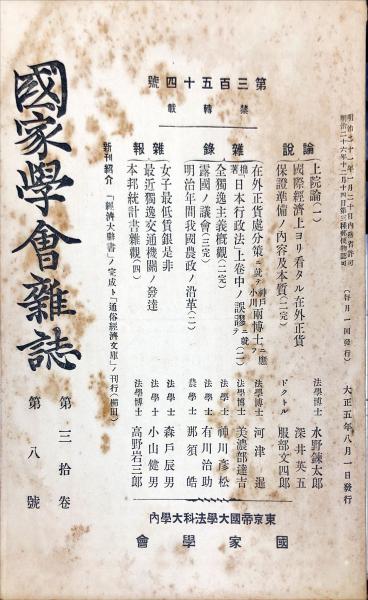 大正五年八月一日發行
(每月一回發行)
明治二十六年十二月十四日第三種郵便物認可
第三百五十四號
禁轉載
論說
上院論(一) 法學博士 水野鍊太郎
國際經濟上ヨリ看タル在外正貨 深井英五
保證準備ノ內容及本質(二完) ドクトル 服部文四郎
雜錄
在外正貨處分策ニ就テ神戶小川兩博士ニ應フ 法學博士 河津暹
日本行政法上卷中ノ誤謬ニ就テ(二) 法學博士 美濃部達吉
全獨逸主義槪觀(二完) 法學士 神川彥松
露國ノ議會(三完) 法學士 有川治助
明治年間我國農政ノ沿革(二) 農學士 那須皓
雜報
女子最低賃銀是非 法學士 森戶辰男
最近獨逸交通機關ノ發達 法學士 小山健男
本邦統計書雜觀(四) 法學博士 高野岩三郎
新刊紹介 「經濟大辭書」ノ完成ト「通俗經濟文庫」ノ刊行
東京帝國大學法科大學內
國家學會
國家學會雜誌
第三拾卷 第八號